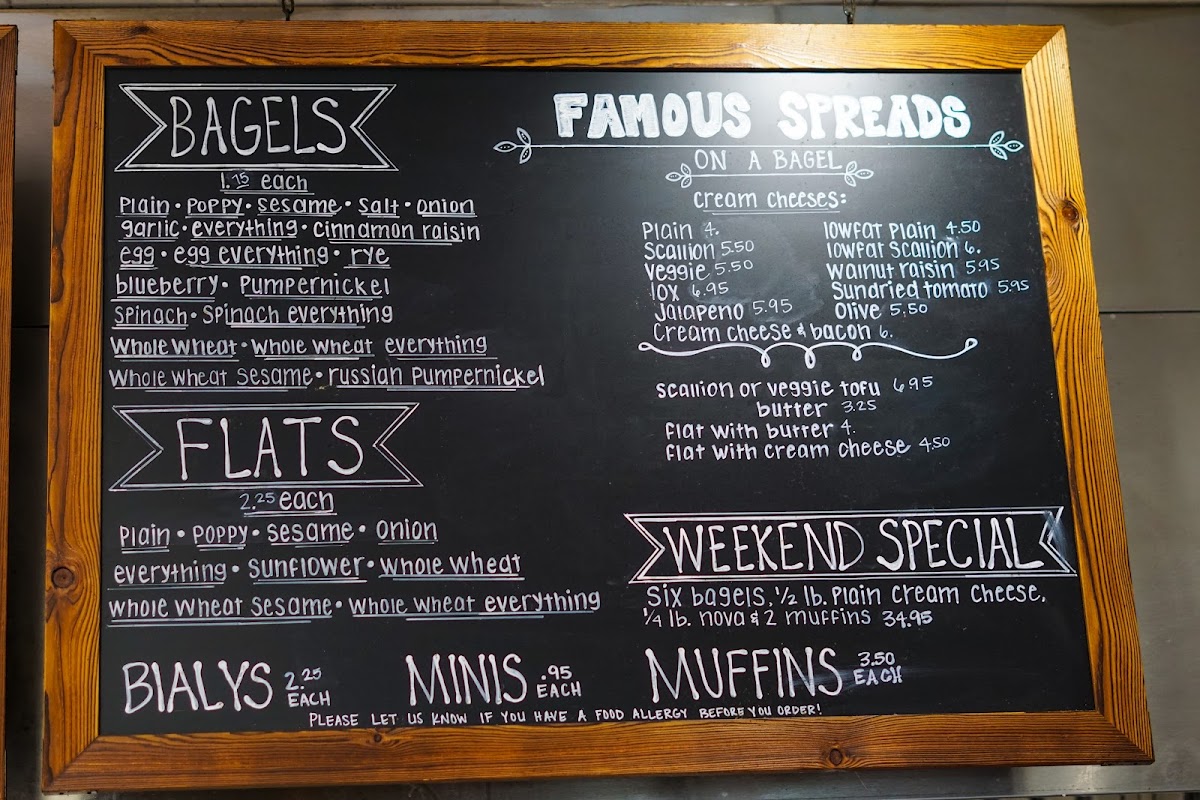 BAGELS
1.75 each
Plain • Poppy • Sesame • Salt • Onion
garlic • everything • Cinnamon raisin
egg • egg everything • rye
blueberry • Pumpernickel
Spinach • Spinach everything
Whole Wheat • Whole Wheat everything
Whole Wheat Sesame • russian Pumpernickel
FLATS
2.25 each
Plain • Poppy • Sesame • Onion
everything • Sunflower • Whole Wheat
Whole Wheat Sesame • Whole Wheat everything
FAMOUS SPREADS
ON A BAGEL
Cream Cheeses:
Plain 4.
Scallion 5.50
Veggie 5.50
lox 6.95
Jalapeno 5.95
Cream cheese & bacon 6.
lowfat Plain 4.50
lowfat Scallion 6.
Walnut raisin 5.95
Sundried tomato 5.95
Olive 5.50
Scallion or Veggie Tofu 6.95
butter 3.25
Flat with butter 4.
Flat with Cream cheese 4.50
WEEKEND SPECIAL
Six bagels, 1/2 lb. Plain Cream Cheese,
1/4 lb. nova & 2 muffins 34.95
BIALYS 2.25 EACH
MINIS .95 EACH
MUFFINS 3.50 EACH
PLEASE LET US KNOW IF YOU HAVE A FOOD ALLERGY BEFORE YOU ORDER!